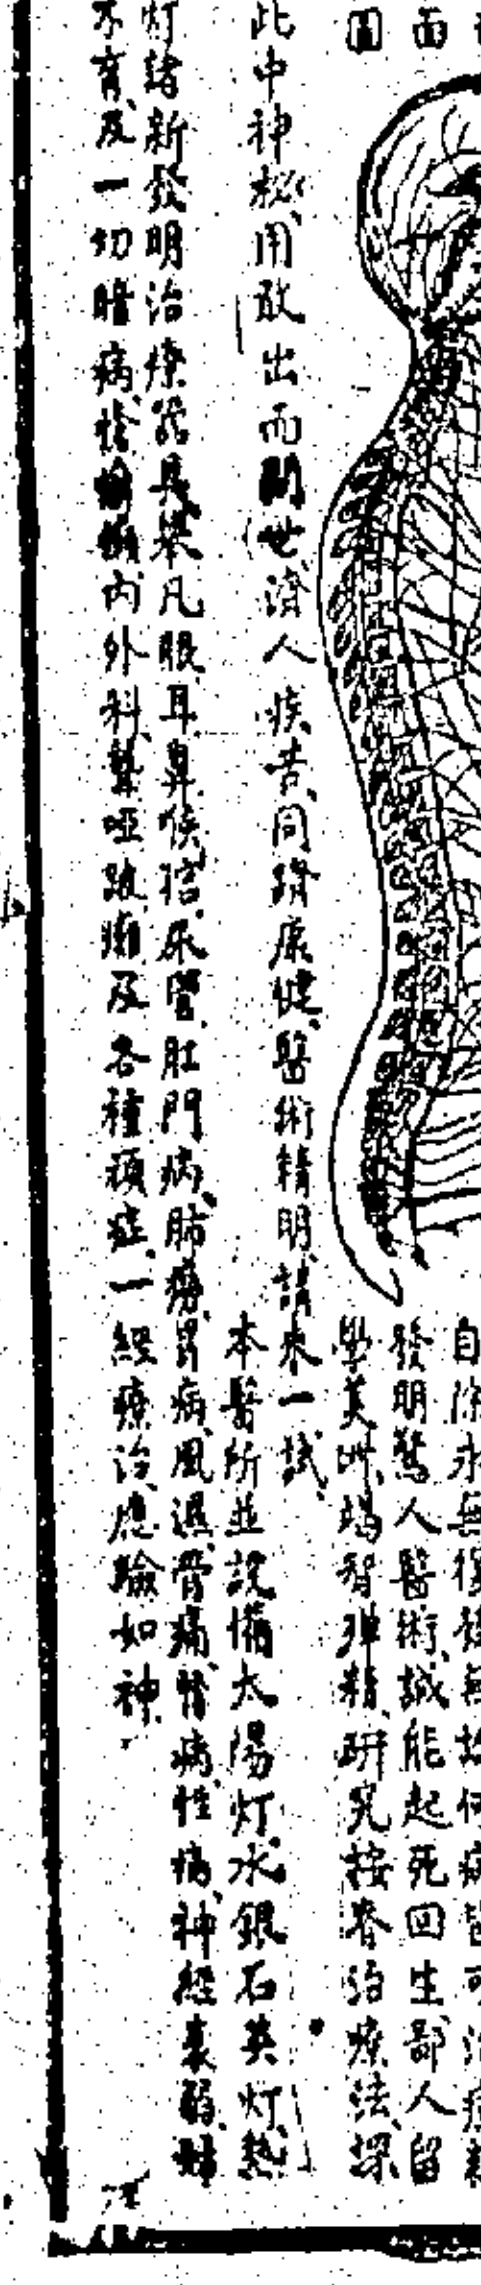 面
圖
自除永無後
發明驚人醫術、誠能起死回生、鄙人留
學美洲、竭智殫精、研究按脊治療法、探
此中神秘、用敢出而問世、濟人疾苦、同躋康健、醫術精明、請來一試、
本醫所並設備太陽灯、水銀石英灯、熱
灯諸新發明治療器具、舉凡眼耳鼻喉、膀尿管、肛門病、肺癆、胃病、風濕骨痛、腎病、性病、神經衰弱、
不育、及一切暗病、內外科、聾啞跛癱及各種頑症、一經療治、應驗如神、